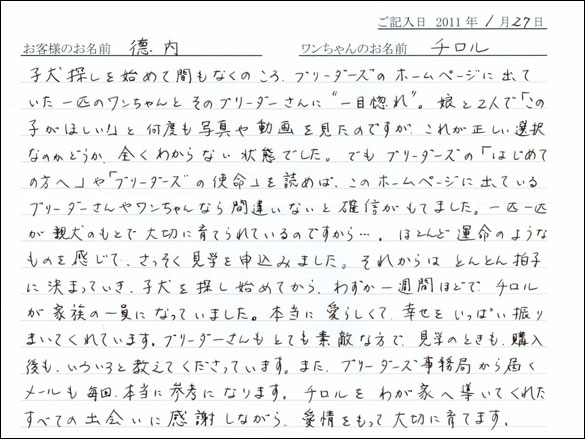 ご記入日 2011年 1月27日
お客様のお名前 德内 ワンちゃんのお名前 チロル
子犬探しを始めて間もなくのころ、ブリーダーズのホームページに出て
いた一匹のワンちゃんとそのブリーダーさんに“一目惚れ”。娘と2人で「この
子がほしい!」と何度も写真や動画を見たのですが、これが正しい選択
なのかどうか、全くわからない状態でした。でもブリーダーズの「はじめて
の方へ」や「ブリーダーズの使命」を読めば、このホームページに出ている
ブリーダーさんやワンちゃんなら間違いないと確信がもてました。一匹一匹
が親犬のもとで大切に育てられているのですから…。ほとんど運命のような
ものを感じて、さっそく見学を申込みました。それからはとんとん拍子
に決まっていき、子犬を探し始めてから、わずか一週間ほどでチロル
が家族の一員になっていました。本当に愛らしくて、幸せをいっぱい振り
まいてくれています。ブリーダーさんもとても素敵な方で、見学のときも、購入
後も、いろいろと教えてくださっています。また、ブリーダーズ事務局から届く
メールも毎回、本当に参考になります。チロルをわが家へ導いてくれた
すべての出会いに感謝しながら、愛情をもって大切に育てます。